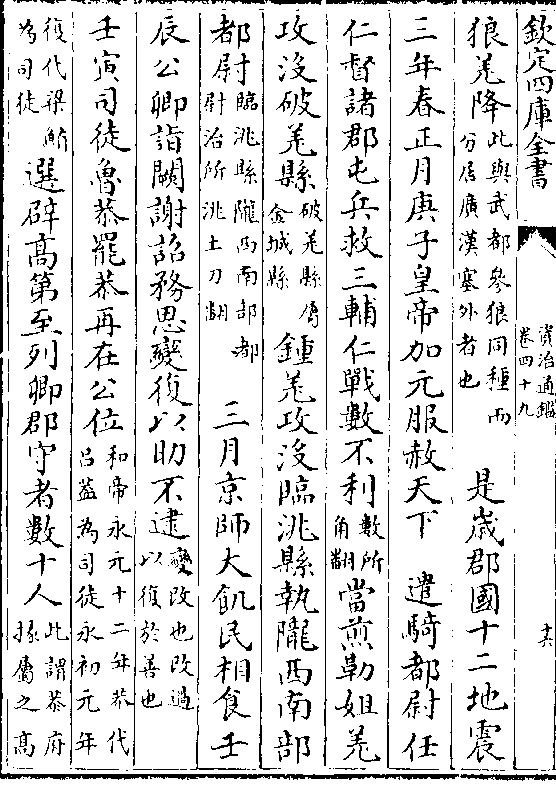 欽定四庫全書
資治通鑑
卷四十九
十六
狼羌降此與武都參狼同種而分居廣漢塞外者也 是歲郡國十二地震
三年春正月庚子皇帝加元服赦天下 遣騎都尉任
仁督諸郡屯兵救三輔仁戰數不利數所角翻當煎勒姐羌
攻沒破羌縣破羌縣屬金城縣 鍾羌攻沒臨洮縣執隴西南部
都尉臨洮縣隴西南部都尉治所洮土刀翻 三月京師大飢民相食壬
辰公卿詣闕謝詔務思變復以助不逮變改也改過以復於善也
壬寅司徒魯恭罷恭再在公位和帝永元十二年恭代呂蓋為司徒永初元年
復代梁鮪為司徒選辟高第至列卿郡守者數十人此謂恭府掾屬之高